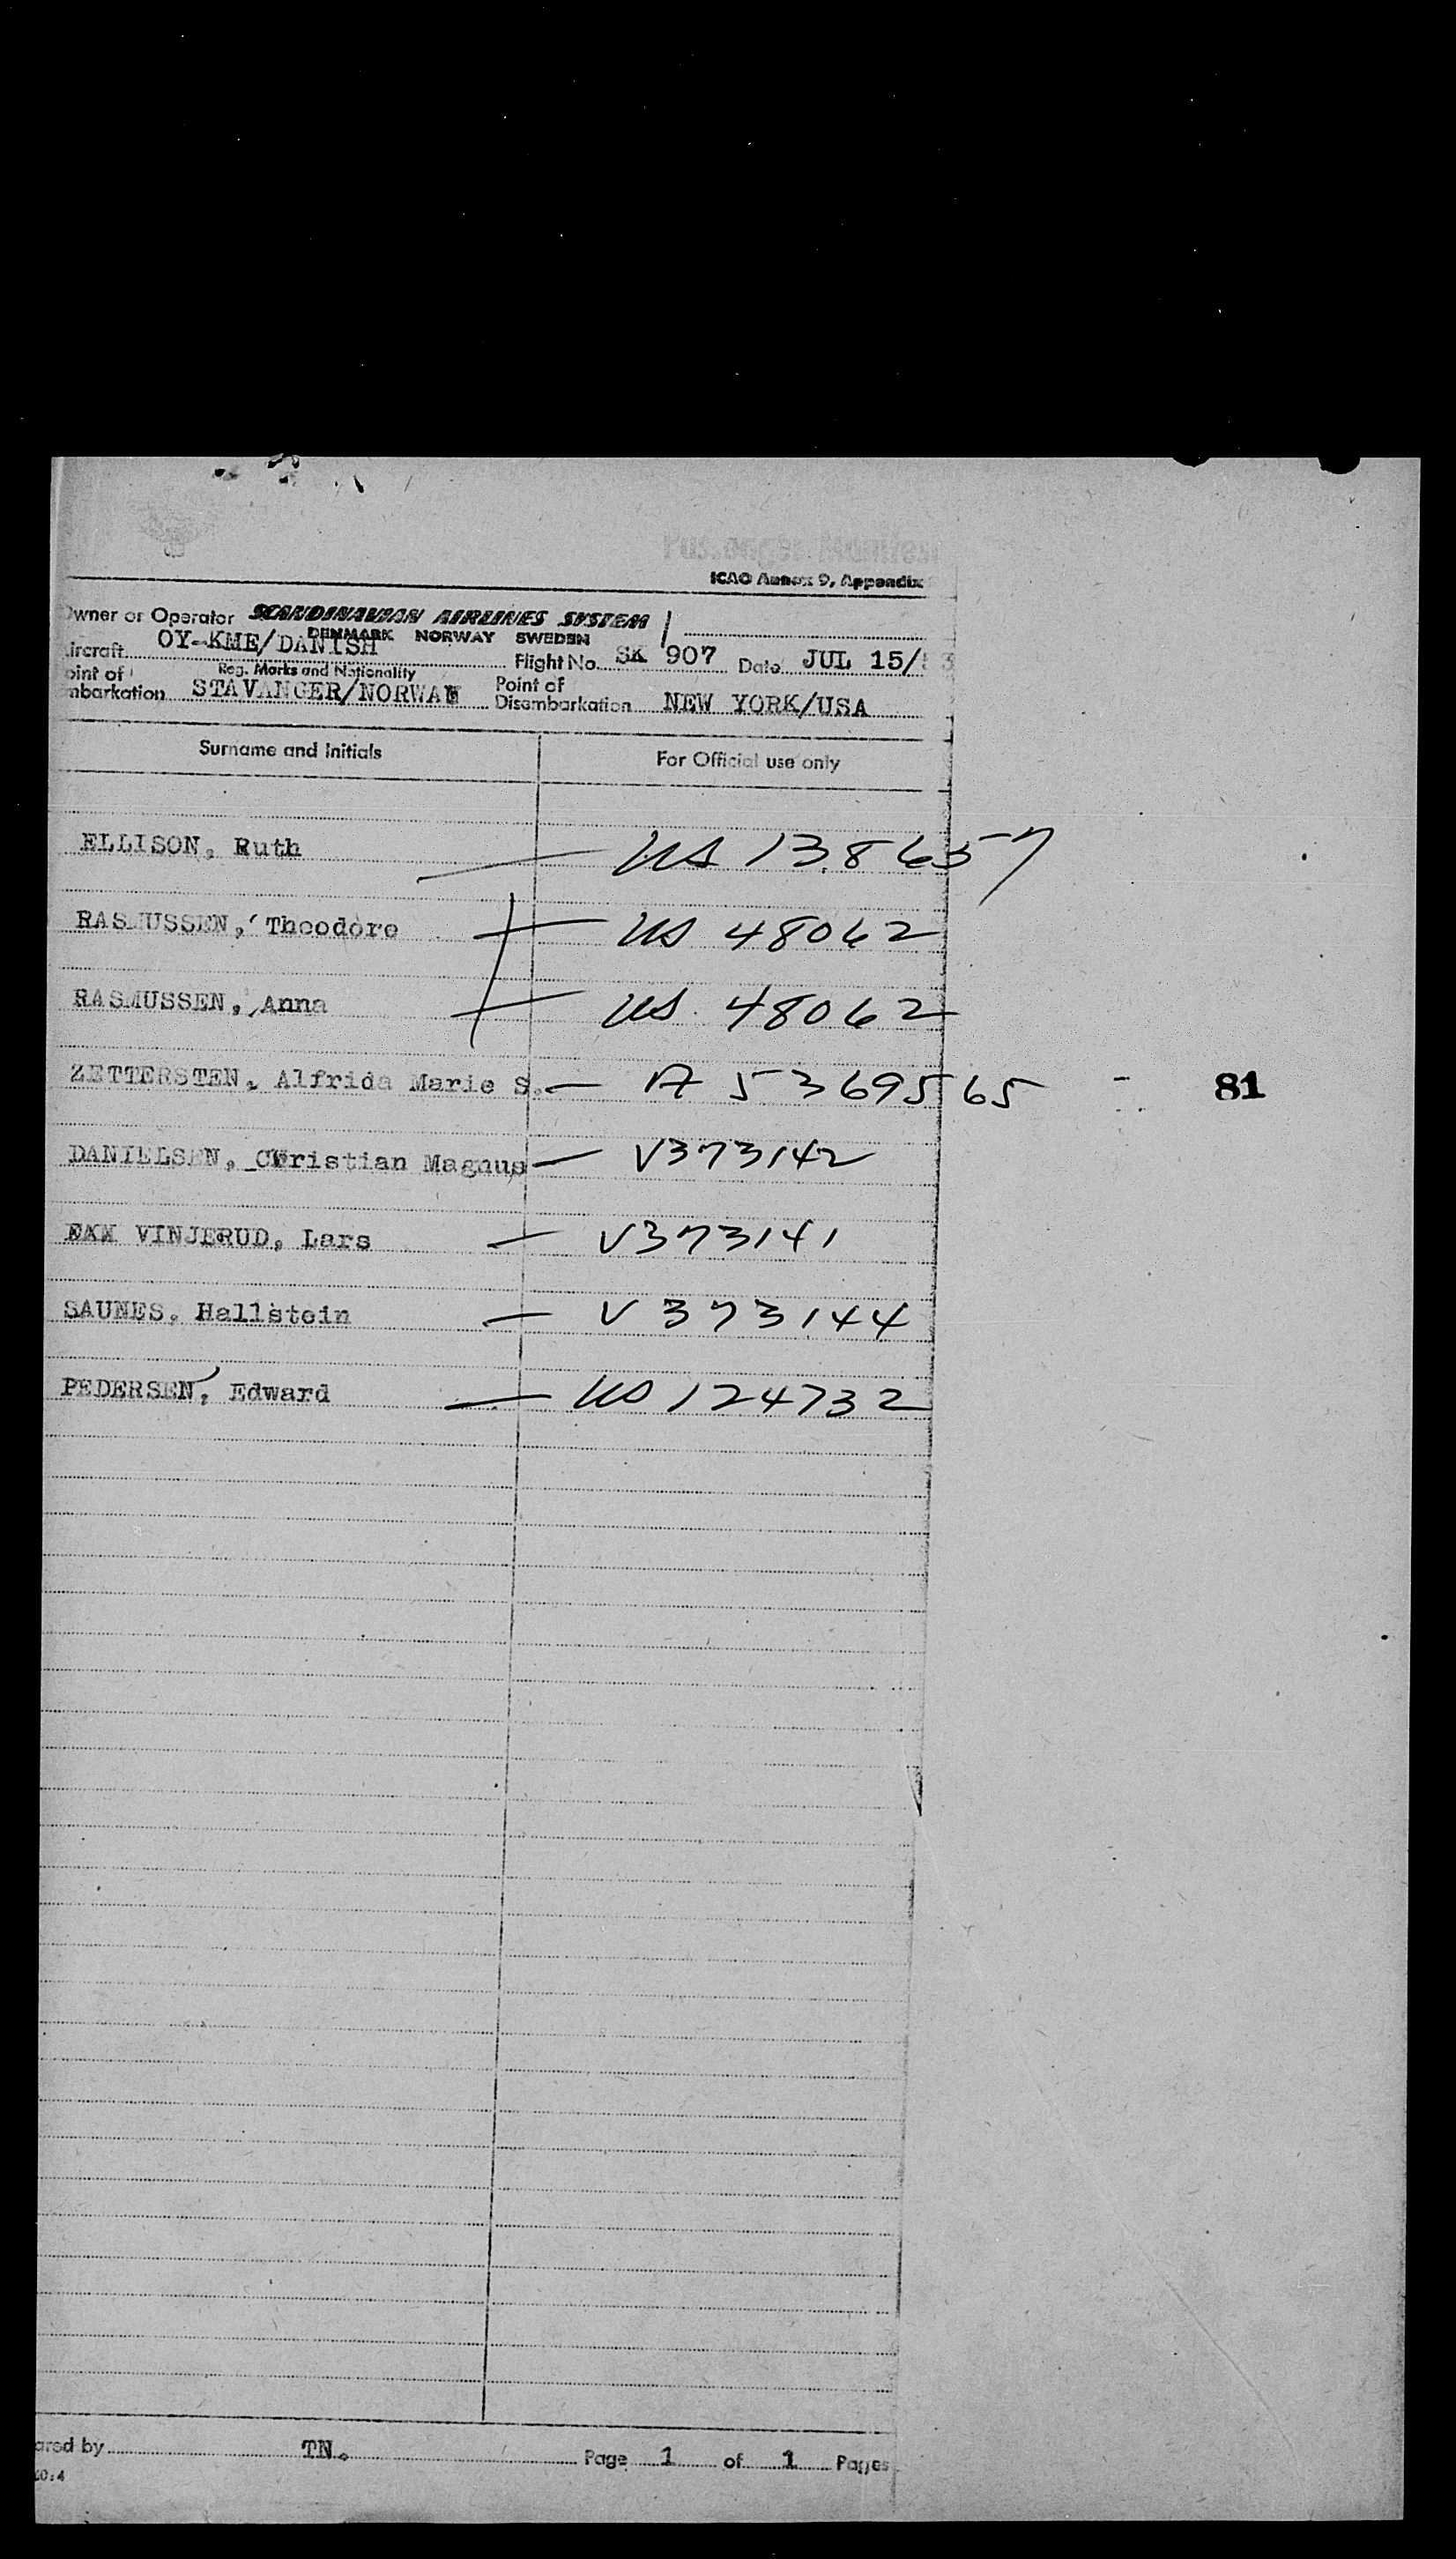 Passenger Manifest
ICAO Annex 9, Appendix
Owner or Operator SCANDINAVIAN AIRLINES SYSTEM
DENMARK NORWAY SWEDEN
Aircraft OY-KME/DANISH Flight No. SK 907 Date JUL 15/53
Reg. Marks and Nationality
Point of Embarkation STAVANGER/NORWAY Point of Disembarkation NEW YORK/USA
Surname and Initials For Official use only
ELLISON, Ruth US 138657
RASMUSSEN, Theodore US 48062
RASMUSSEN, Anna US 48062
ZETTERSTEN, Alfrida Marie S. A 5369565 81
DANIELSEN, Christian Magnus V373142
VINJERUD, Lars V373141
SAUNES, Hallstein V373144
PEDERSEN, Edward US 124732
ared by TN. Page 1 of 1 Pages